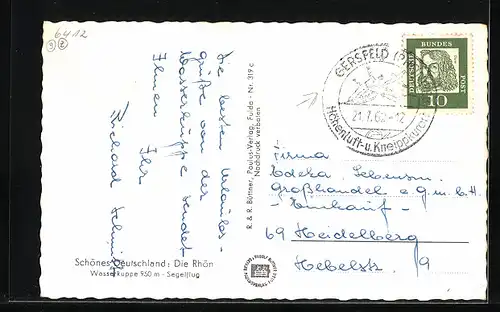 6412
3 2
Die besten Urlaubs-
grüße von der
Wasserkuppe sendet
Ihnen Ihr
Richard
Schönes Deutschland: Die Rhön
Wasserkuppe 950 m - Segelflug
R. & R. Büttner, Paulus-Verlag, Fulda - Nr. 319 c
Nachdruck verboten
GERSFELD
21.7.62-12
Höhenluft-u. Kneippkurort
DEUTSCHE
BUNDES
POST
10
Firma
Edeka Lebensm.
Großhandel e.g.m.b.H.
- Einkauf -
69 Heidelberg
Hebelstr. 9